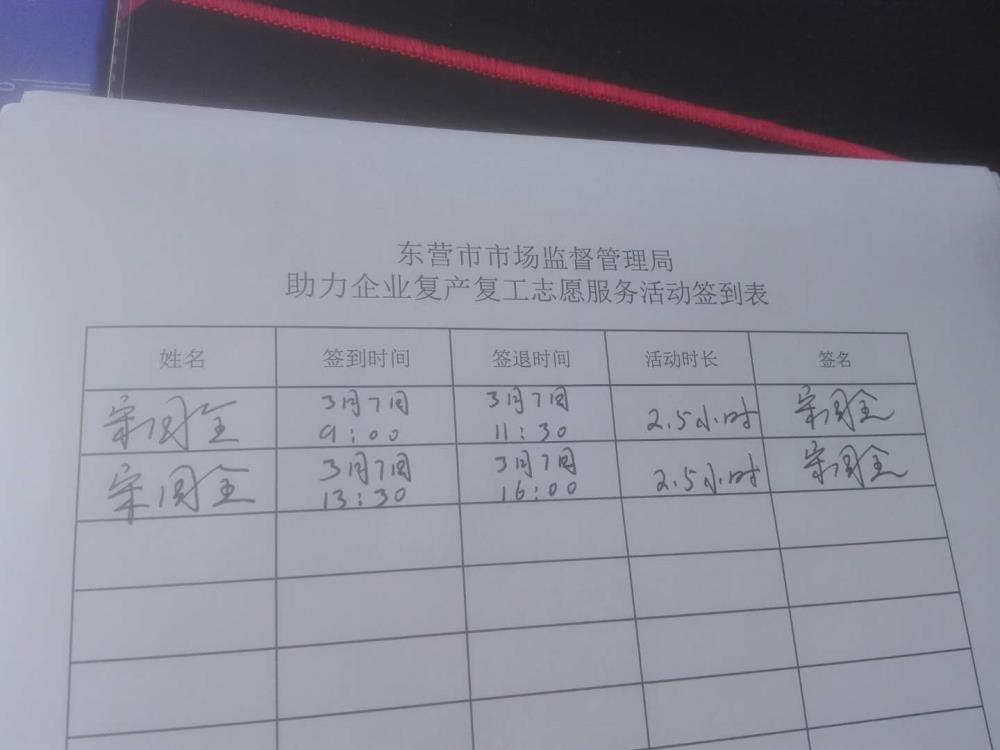 东营市市场监督管理局
助力企业复产复工志愿服务活动签到表
姓名 签到时间 签退时间 活动时长 签名
3月7日 3月7日
9:00 11:30 2.5小时
3月7日 3月7日
13:30 16:00 2.5小时